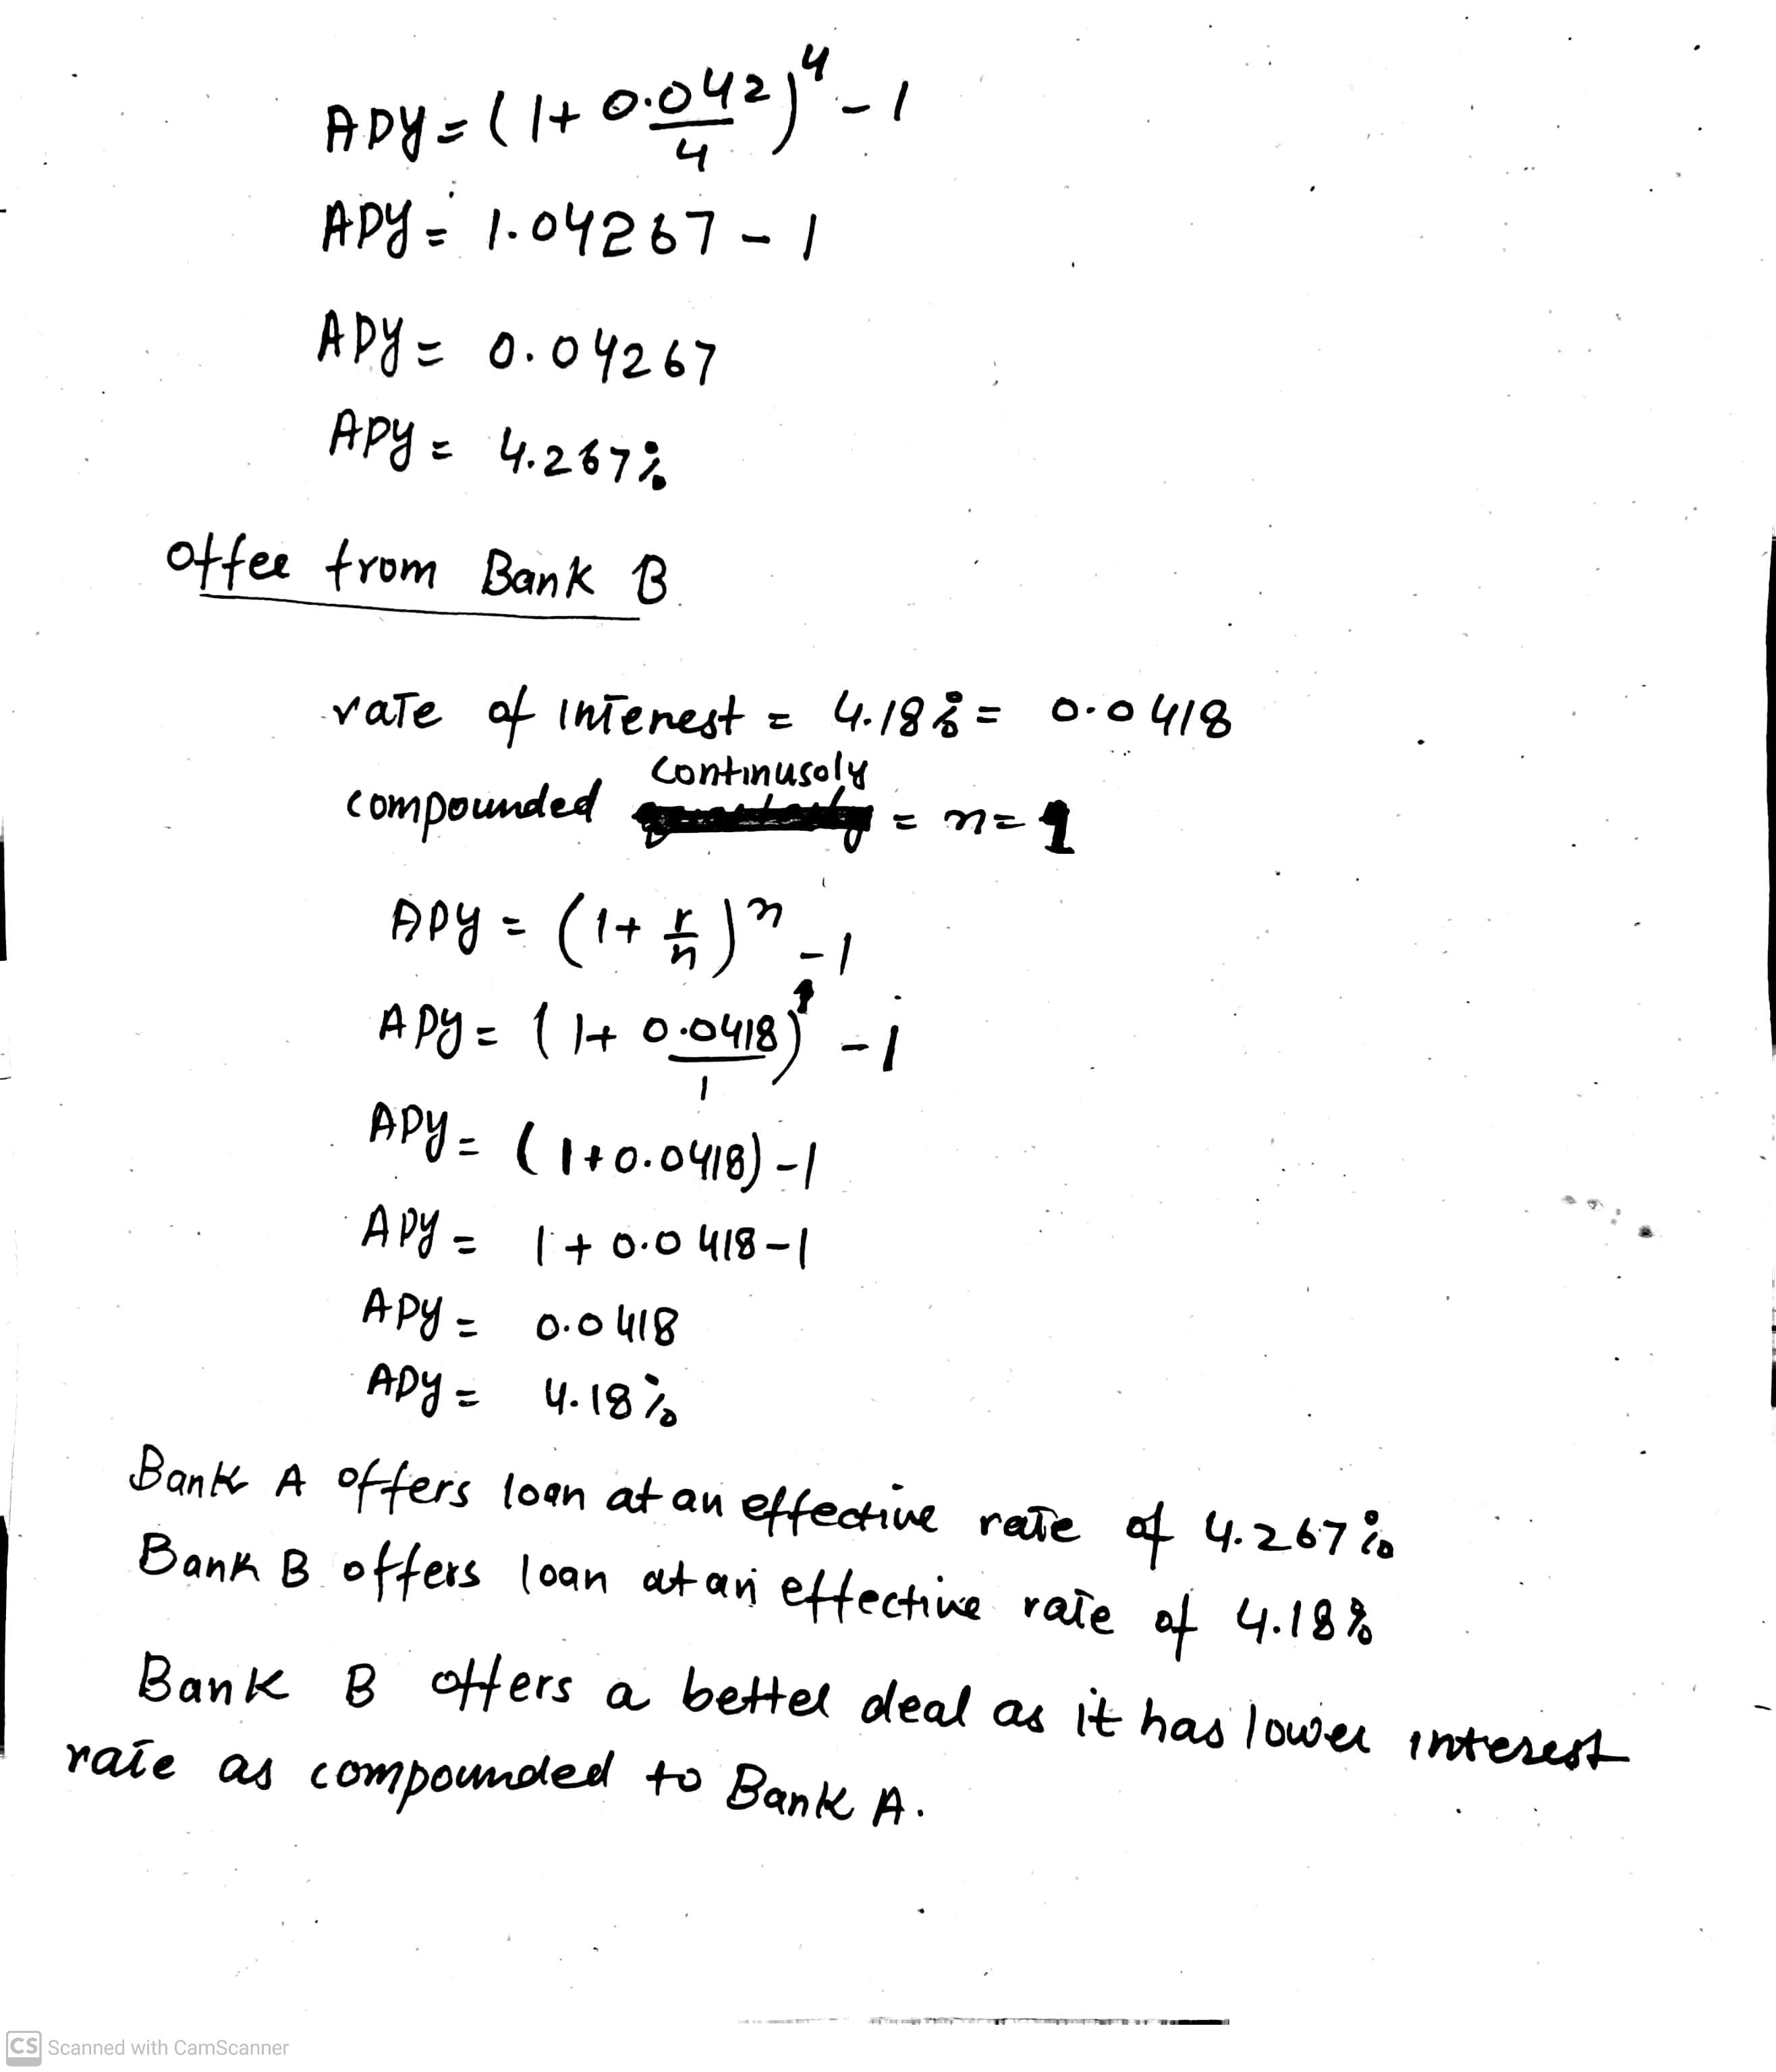 APY = (1+ 0.042/4)^4 - 1
APY = 1.04267 - 1
APY = 0.04267
APY = 4.267%
Offer from Bank B
rate of Interest = 4.18% = 0.0418
continusoly
compounded = n = 1
APY = (1+ r/n)^n - 1
APY = (1+ 0.0418/1)^1 - 1
APY = (1+0.0418) - 1
APY = 1+0.0418-1
APY = 0.0418
APY = 4.18%
Bank A offers loan at an effective rate of 4.267%
Bank B offers loan at an effective rate of 4.18%
Bank B offers a better deal as it has lower interest
rate as compounded to Bank A.
CS Scanned with CamScanner